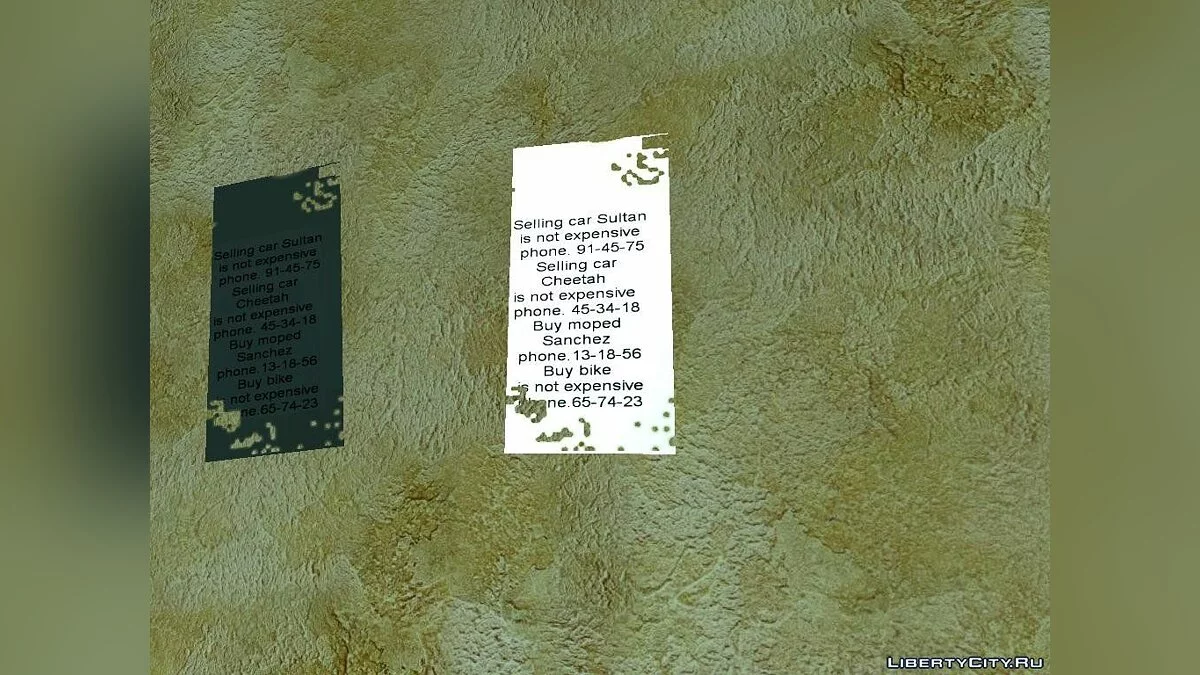 Selling car Sultan
is not expensive
phone. 91-45-75
Selling car
Cheetah
is not expensive
phone. 45-34-18
Buy moped
Sanchez
phone.13-18-56
Buy bike
not expensive
ne.65-74-23
Selling car Sultan
is not expensive
phone. 91-45-75
Selling car
Cheetah
is not expensive
phone. 45-34-18
Buy moped
Sanchez
phone.13-18-56
Buy bike
is not expensive
ne.65-74-23
LibertyCity.Ru